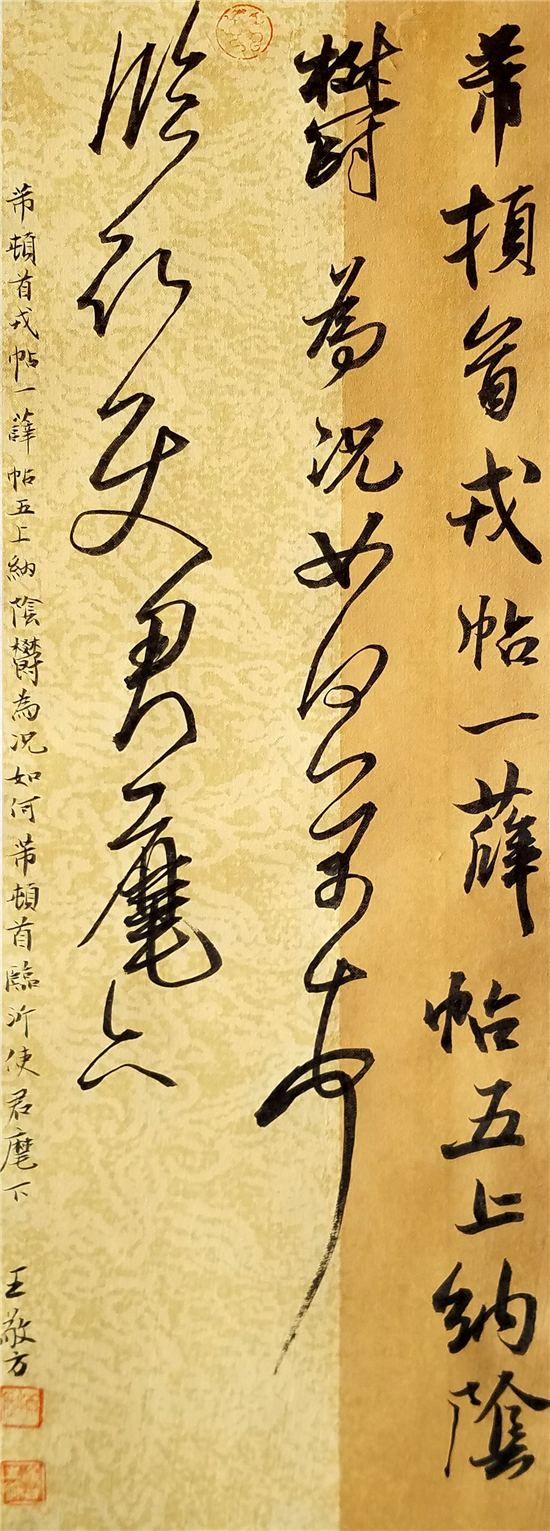 芾頓首戎帖一薛帖五上納陰
欝為况如何芾頓首
臨沂使君麾下
芾頓首戎帖一薛帖五上納陰欝為况如何芾頓首臨沂使君麾下 王敬方